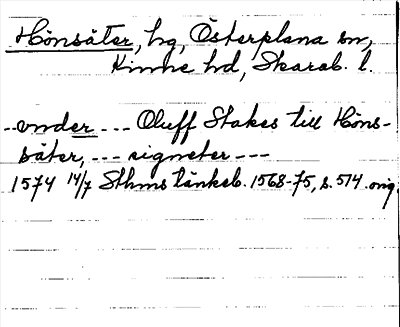 Hönsäter, hg, Österplana sn,
Kinne hd, Skarab. l.
--under --- Oluff Stakes till Höns-
säter, --- signeter ---
1574 14/7 Sthms tänkeb. 1568-75, s. 514. orig.